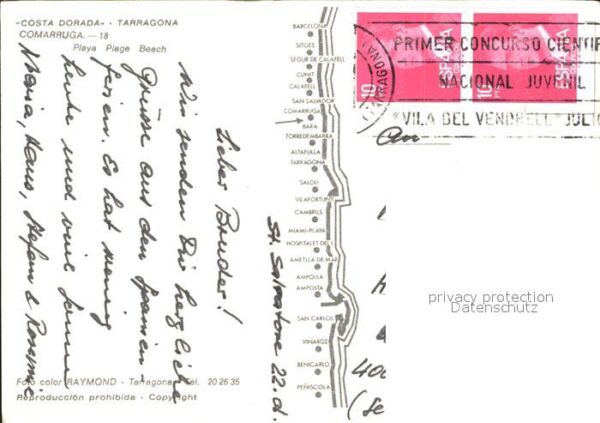 "COSTA DORADA" - TARRAGONA
COMARRUGA. — 18
Playa Plage Beach
St. Salvatore 22.d.
Lieber Bruder!
Wir senden Dir herzliche
Grüsse aus den Spanien-
ferien. Es hat wenig
Leute und viel Sonne
Maria, Hans, Stefan &
Foto color RAYMOND - Tarragona Tel. 20 26 35
Reproducción prohibida - Copyright
BARCELONA
SITGES
SEGUR DE CALAFELL
CUNIT
CALAFELL
SAN SALVADOR
COMARRUGA
BARA
TORREDEMBARRA
ALTAFULLA
TARRAGONA
SALOU
VILAFORTUNY
CAMBRILS
MIAMI-PLAYA
HOSPITALET DEL I.
AMETLLA DE MAR
AMPOLLA
AMPOSTA
SAN CARLOS
VINAROZ
BENICARLO
PEÑISCOLA
ESPAÑA
10
ESPAÑA
10
TARRAGONA
PRIMER CONCURSO CIENTIF
NACIONAL JUVENIL
"VILA DEL VENDRELL" JULIO
An
privacy protection
Datenschutz